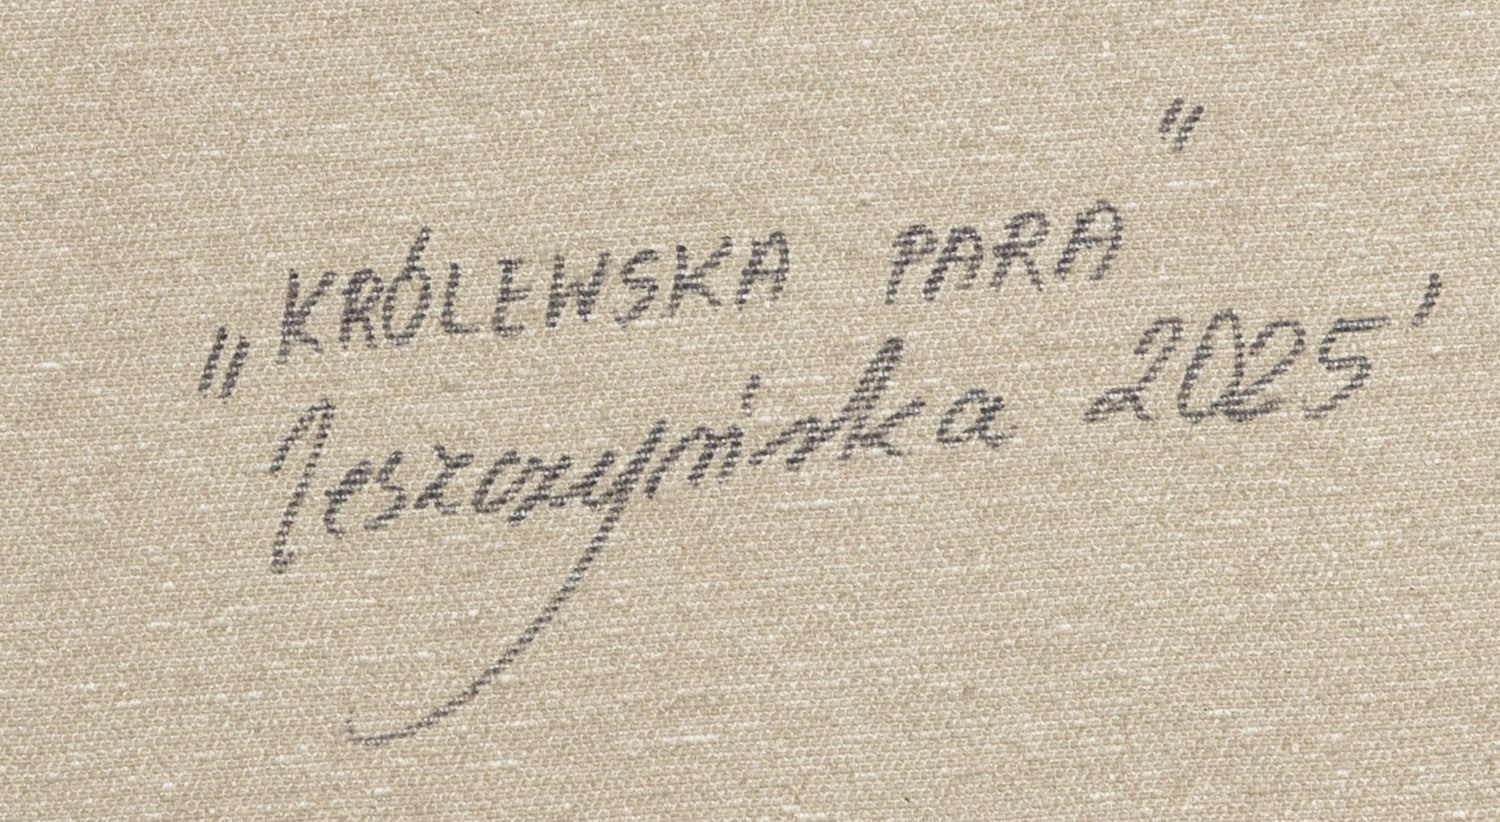 „KRÓLEWSKA PARA"
Jeszczyńska 2025'